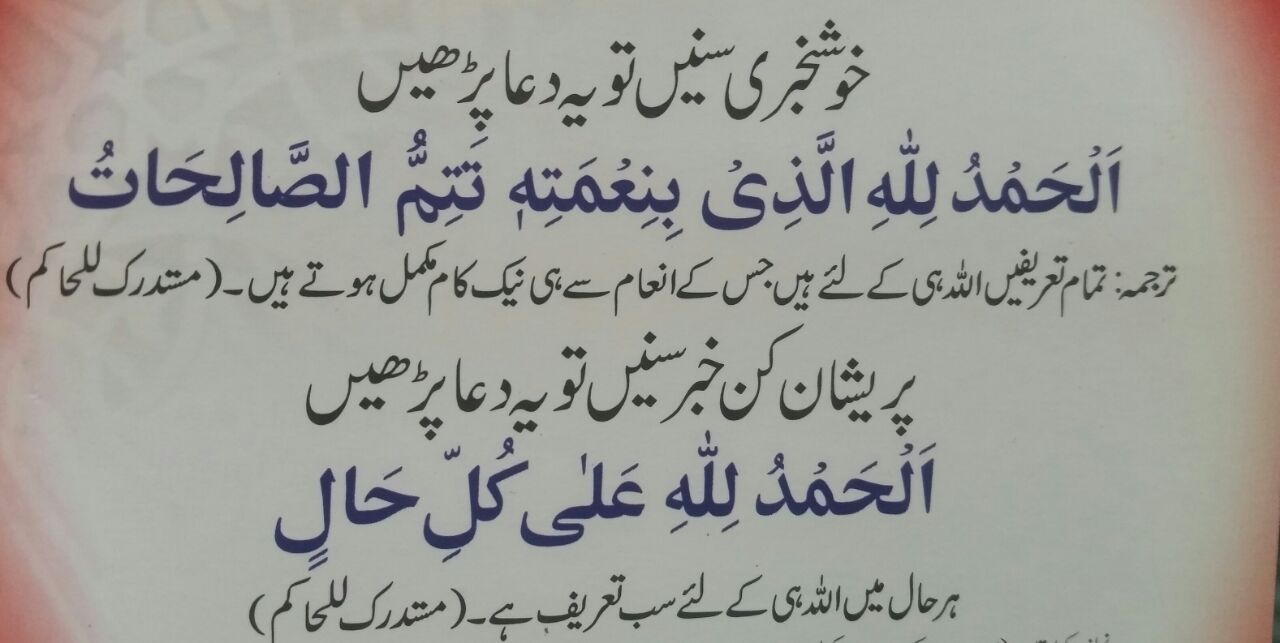 خوشخبری سنیں تو یہ دعا پڑھیں
اَلْحَمْدُ لِلّٰهِ الَّذِیْ بِنِعْمَتِهٖ تَتِمُّ الصَّالِحَاتُ
ترجمہ: تمام تعریفیں اللہ ہی کے لئے ہیں جس کے انعام سے ہی نیک کام مکمل ہوتے ہیں۔ (مستدرک للحاکم)
پریشان کن خبر سنیں تو یہ دعا پڑھیں
اَلْحَمْدُ لِلّٰهِ عَلٰی کُلِّ حَالٍ
ہر حال میں اللہ ہی کے لئے سب تعریف ہے۔ (مستدرک للحاکم)